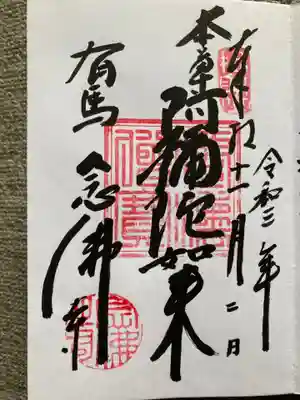 令和三年
奉拝
十一月二日
本尊
阿彌陀如来
有馬
念佛寺